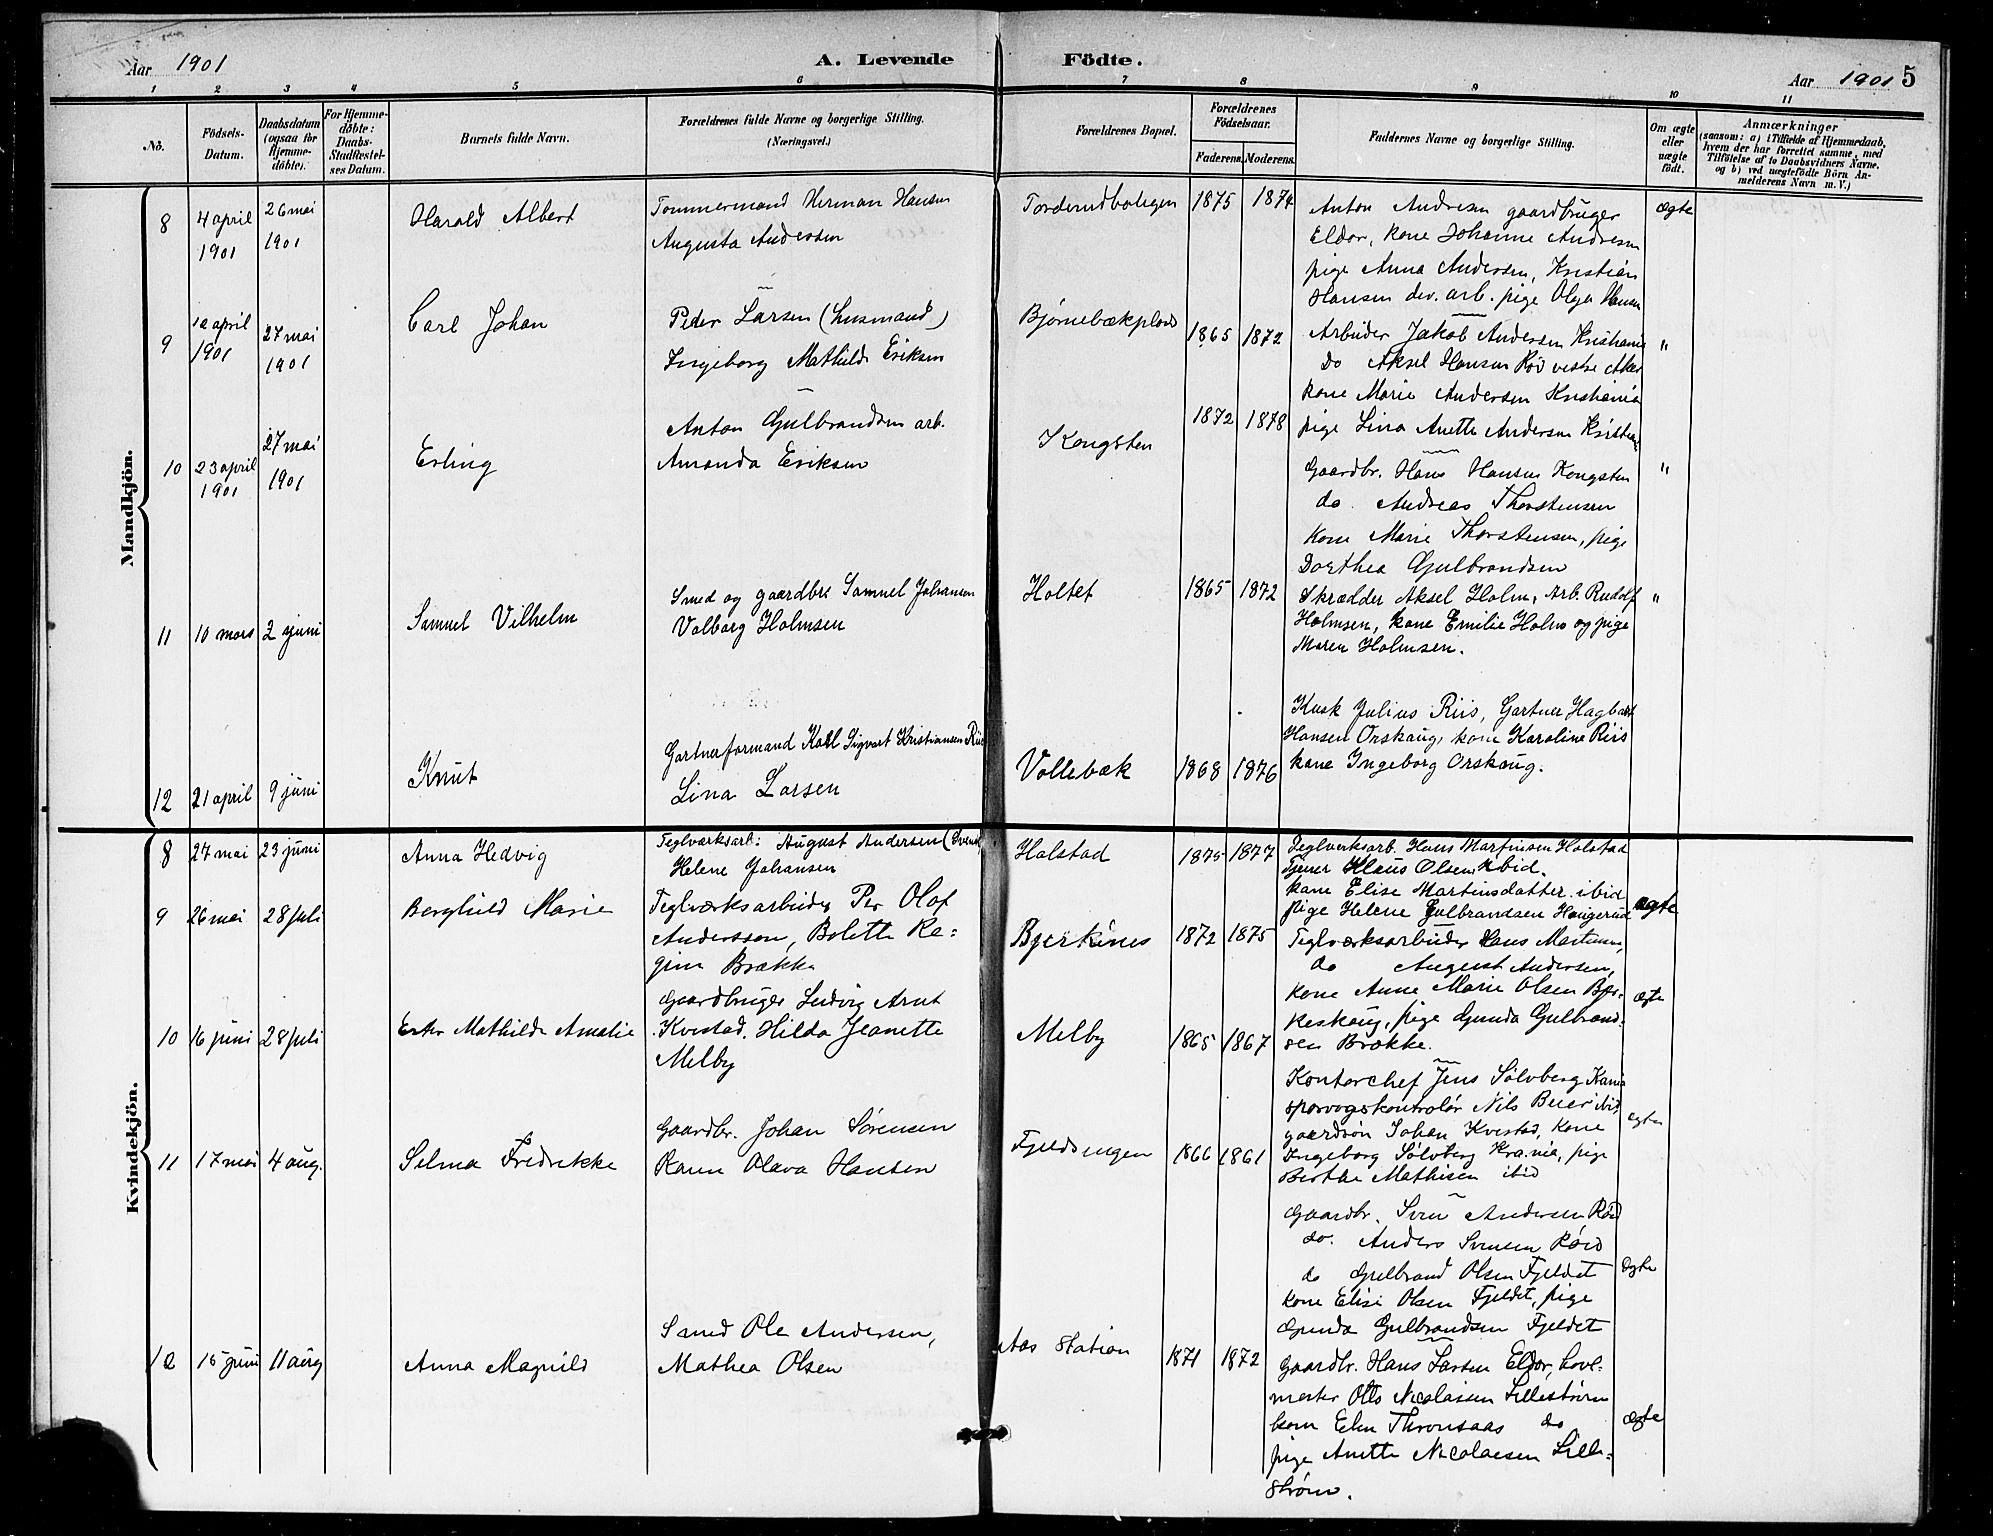 Aar 1901
A. Levende Födte.
Aar 1901 5
1 2 3 4 5 6 7 8 9 10 11
No.
Födsels-Datum.
Daabsdatum (ogsaa for Hjemme-döbte).
For Hjemme-döbte: Daabs-Stadfæstel-ses Datum.
Barnets fulde Navn.
Forældrenes fulde Navne og borgerlige Stilling. (Næringsvei.)
Forældrenes Bopæl.
Forældrenes Födselsaar.
Faderens. Moderens.
Faddernes Navne og borgerlige Stilling.
Om ægte eller uægte födt.
Anmærkninger
(saasom: a) i Tilfælde af Hjemmedaab, hvem der har forrettet samme, med Tilföielse af to Daabsvidners Navne, og b) ved uægtefödte Börn An-melderens Navn m. V.)
Mandkjön.
8 4 april 1901 26 mai 1901
Harald Albert
Tømmermand Herman Hansen
Augusta Andersen
Torderudboligen 1875 1874
Anton Andresen gaardbruger
Eldor, kone Johanne Andresen
pige Anna Andersen, Kristian
Hansen dev. arb. pige Olga Hansen
Ægte
9 12 april 1901 27 mai 1901
Carl Johan
Peder Larsen (husmand)
Ingeborg Mathilde Eriksen
Bjørnebækplads 1865 1872
Arbeider Jakob Andersen Kristiania
Do Aksel Hansen Røi vestre Aker
kone Marie Andersen Kristiania
pige Lina Anette Andersen
"
10 23 april 1901 27 mai 1901
Erling
Anton Gulbrandsen arb.
Amanda Eriksen
Kongsten 1872 1878
Gaardbr. Hans Hansen Kongsten
do. Andreas Thorstensen
kone Marie Thorstensen, pige
Dorthea Gulbrandsen
"
11 10 mars 2 juni
Samuel Vilhelm
Smed og gaardbr Samuel Johansen
Valborg Holmsen
Holtet 1865 1872
Skrædder Aksel Holm, Arb. Rudolf
Holmsen, kone Emilie Holm og pige
Maren Holmsen.
"
12 21 april 9 juni
Knut
Gartnerformand Karl Sigvart Kristiansen Riis
Lina Larsen
Vollebæk 1868 1876
Kusk Julius Riis, Gartner Hagbart
Hansen Orskaug, kone Karoline Riis
kone Ingeborg Orskaug.
Kvindekjön.
8 27 mai 23 juni
Anna Hedvig
Teglværksarb: August Andersen (Svensk)
Helene Johansen
Holstad 1875 1877
Teglverksarb. Hans Martinsen Holstad
Tjener Klaus Olsen ibid.
kone Elise Martinsdatter ibid
pige Helene Gulbrandsen Haugerud
ægte
9 26 mai 28 juli
Borghild Marie
Teglværksarbeider Per Olof
Andersson, Bolette Re-
gine Brække
Bjerkenes 1872 1875
Teglværksarbeider Hans Martinsen,
do August Andersen,
kone Anne Marie Olsen Bjer-
keskaug, pige Gunda Gulbrand-
sen Brække.
ægte
10 16 juni 28 juli
Ester Mathilde Amalie
Gaardbruger Ludvig Arnt
Kvestad, Hilda Jeanette
Melby
Melby 1865 1867
Kontorchef Jens Sølvberg Kania
sporvogskontrolør Nils Beier ibid,
gaardsøn Johan Kvestad, kone
Ingeborg Sølvberg Kra.nia, pige
Berthe Mathisen ibid
egte
11 17 mai 4 aug.
Selma Fredrikke
Gaardbr. Johan Sørensen
Karen Olava Hansen
Fjeldsengen 1866 1861
Gaardbr. Sven Andersen Røid
do. Anders Svensen Røid
do Gulbrand Olsen Fjeldet
kone Elise Olsen Fjeldet, pige
Gunda Gulbrandsen Fjeldet
ægte
12 15 juni 11 aug
Anna Magnild
Smed Ole Andersen,
Mathea Olsen
Aas Station 1871 1872
Gaardbr. Hans Larsen Eldor, hovl-
mester Otto Nicolaisen Lillestrøm
kone Elen Thronsaas do
pige Anette Nicolaesen Lille-
strøm.
ægte